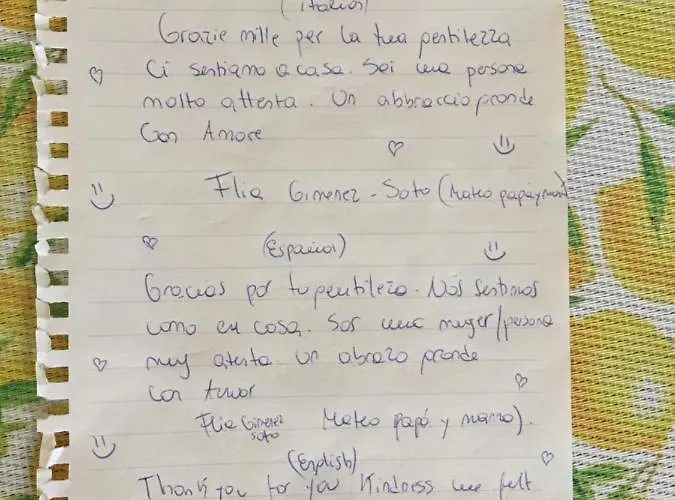 (italia)
Grazie mille per la tua pentilezza
Ci sentiamo a casa. Sei una persona
molto attenta. Un abbraccio prande
Con Amore
Flia Gimenez - Soto (Mateo papá y mamá)
(Español)
Gracias por tu pentileza. Nos sentimos
como en casa. Sos una muger/persona
muy atenta. un abrazo prande
con Amor
Flia Gimenez Mateo papá y mamá).
Soto
(English)
Thank you for you Kindness we felt